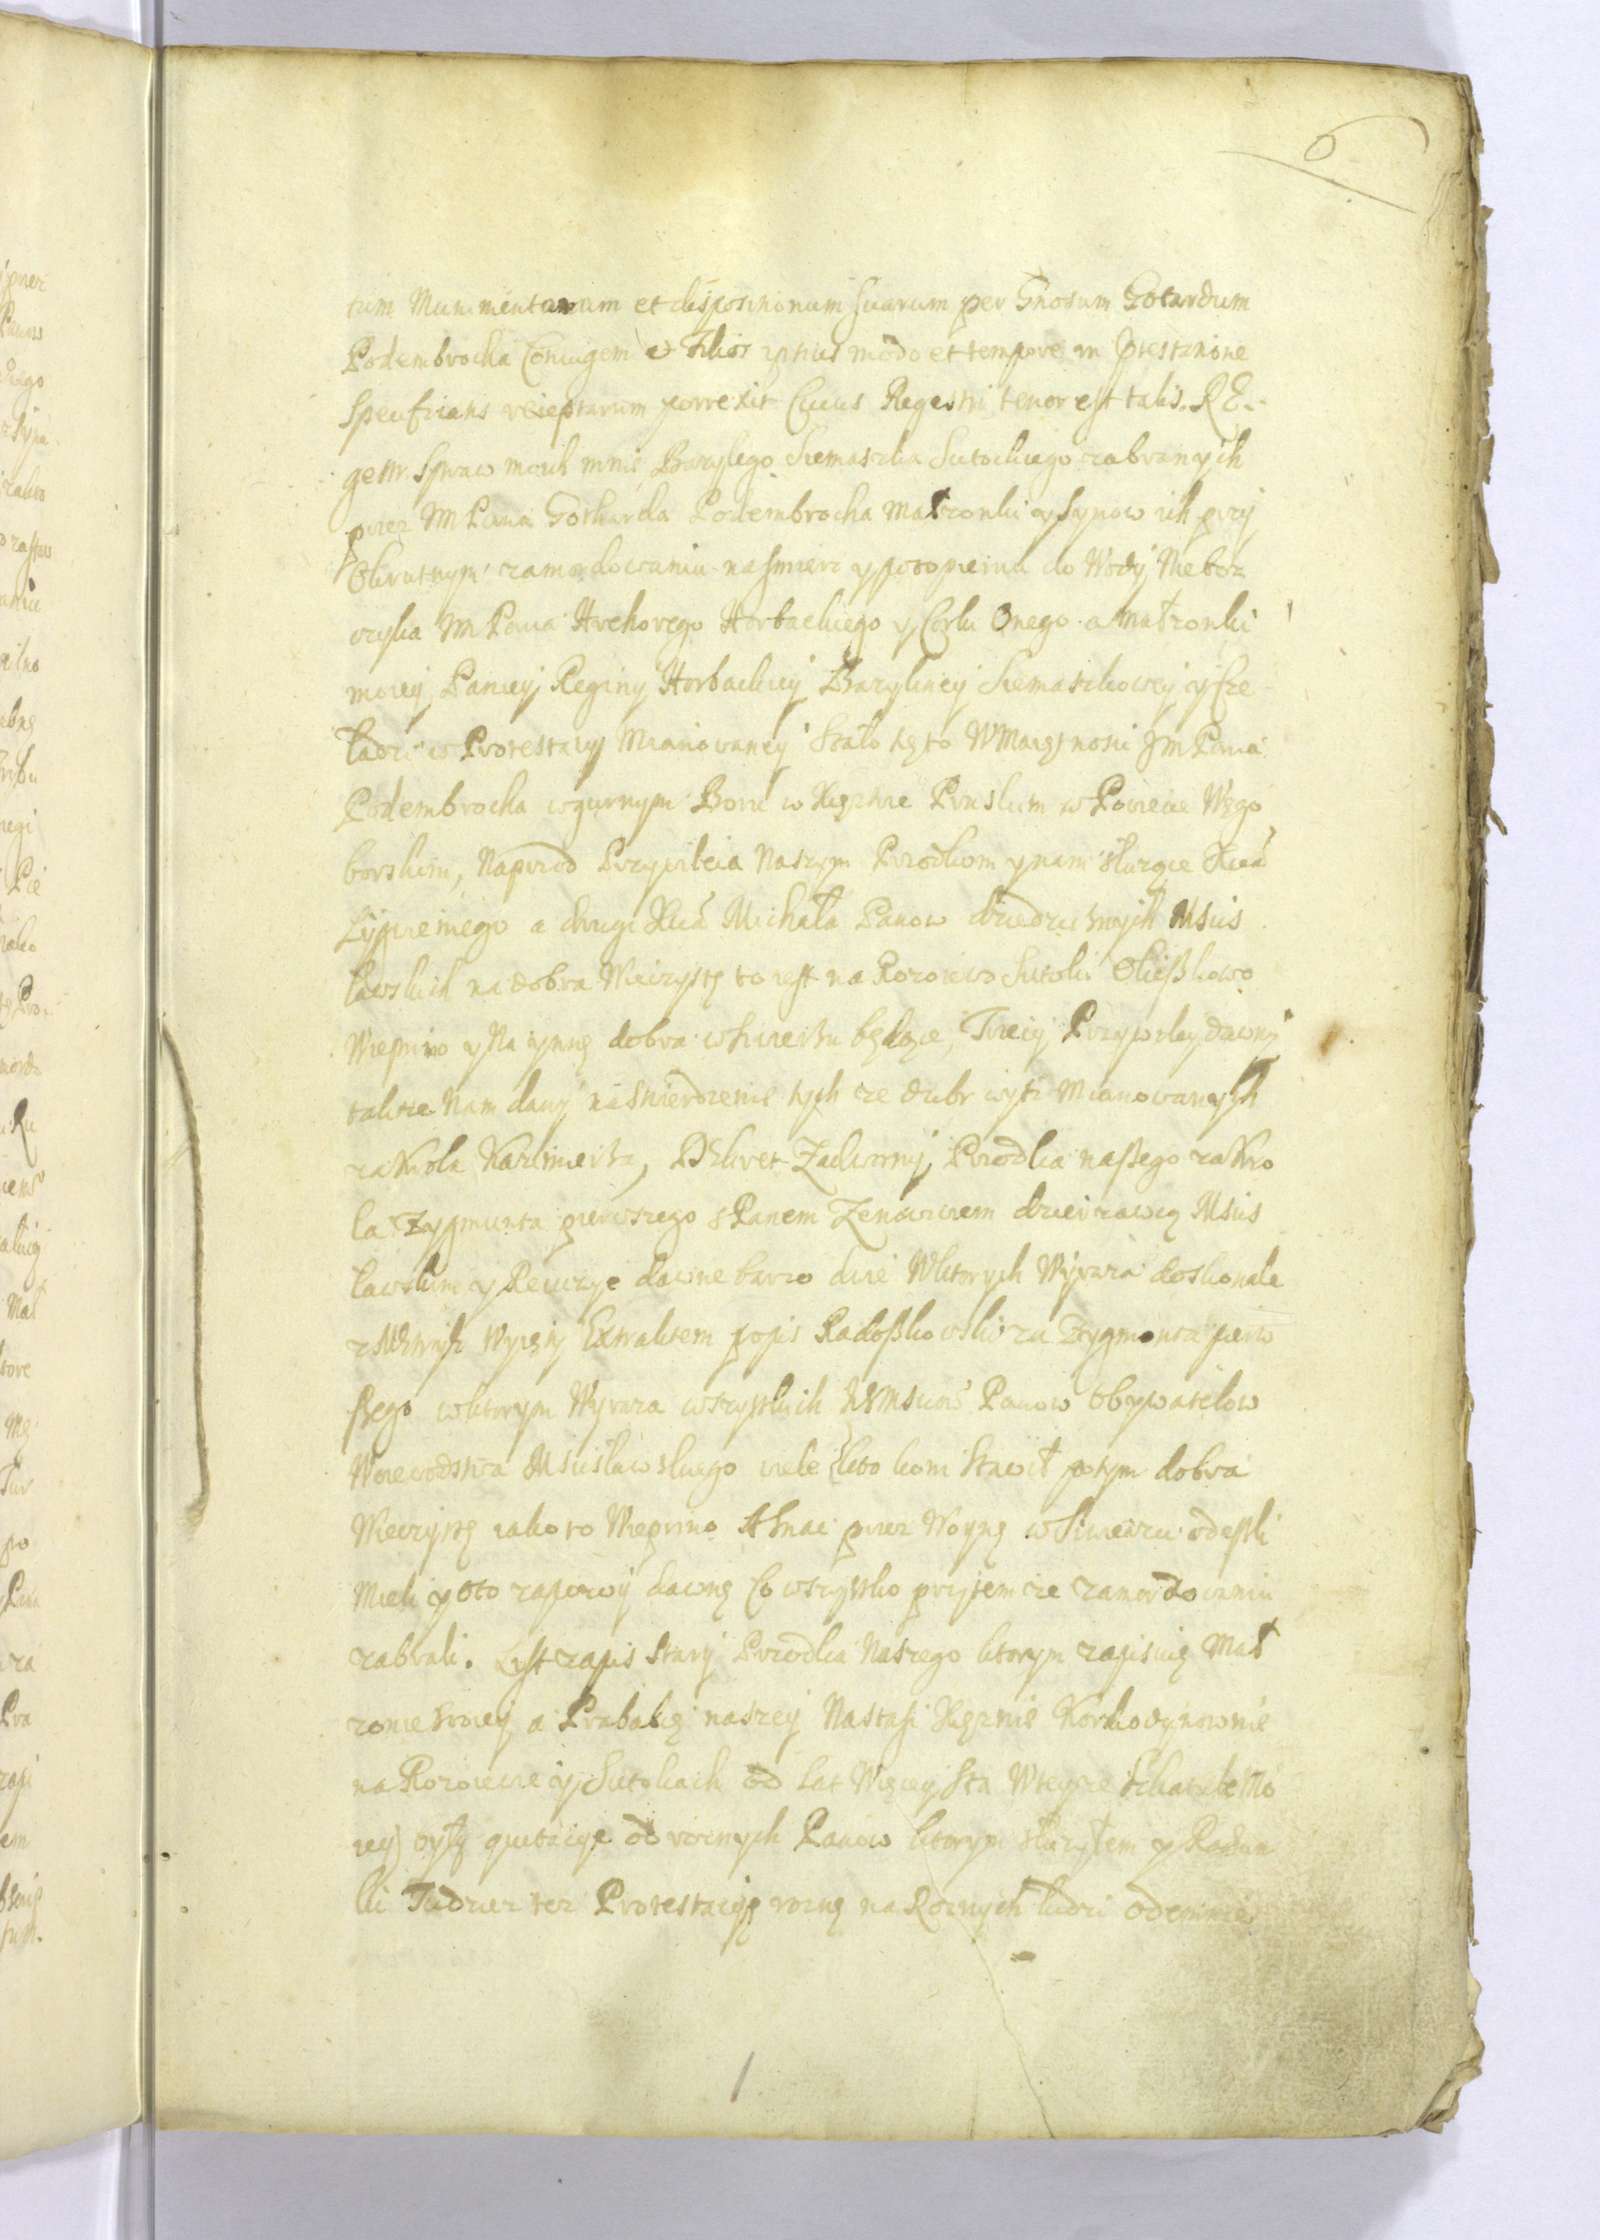 6
tum Munimentorum et dispositionum suarum per Gnosum Gotardum
Podembrocka Coniugem et Filios ipsius modo et tempore in Protestatione
Specificatis receptarum porrexit Cuius Regestri tenor est talis. RE-
gestr Spraw moich mnie Bazylego Siemaszka Sutockiego zabranych
przez Im Pana Gotharda Podembrocka Małzonki y Synow ich przy
Okrutnym zamordowaniu na smierc y potopieniu do Wody Niebosz
czyka Im Pana Hrehorego Horbackiego y Corki Onego a Małzonki
moiey Paniey Reginy Horbackiey Bazyliney Siemaszkowey y Cze
ladzi w Protestacyi Mianowaney Stało się to W Maiętnosci Jm Pana
Podembrocka w gurnym Boru w Xięztwie Pruskim w Powiecie Węgo
borskim, Naprzod Przywileia Naszym Przodkom y nam słuzące
a drugi Michała Panow dziedzicznych Mscis
lawskich na dobra Wieczyste to iest na Rozoiewo Sutoki
y Na ynnę dobra będące, Trzeci Przywiley dawny
takze Nam dany na stwierdzenie tych ze dobr wysz Mianowanych
za Krola Kazimierza, Dekret Zadworny Przodka naszego za Kro
la Zygmunta pierwszego s Panem Zenowiczem dzierzawcą Mscis
lawskim y Rewizye dawne barzo dwie W ktorych Wyraza doskonale
z Metryk Wyięty Extraktem popis Radoszkowski za Zygmonta pierw
szego w ktorym Wyraza wszystkich Panow Obywatelow
Woiewodstwa Mscisławskiego wiele kto koni Stawił potym dobra
Wieczystę iako to przez Woynę odeszli
Mieli y oto zapozwy dawnę Co wszystko przy tem ze zamordowaniu
zabrali. Lyst zapis Stary Przodka Naszego ktorym zapisuię Mał
zonce swoiey a Prababcę naszey Nastasi Xięznie
na Rozoiewie y Sutokach od lat Więcey Sta W teyze
quitacye od roznych Panow ktorym słuzyłem y Rachun
ki Tudziez tez Protestacyę roznę na Roznych ludzi odemnie
1